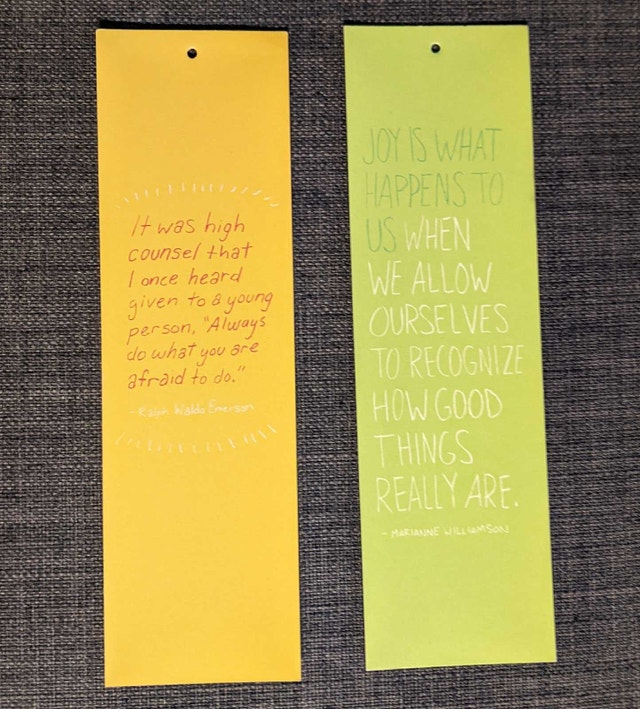 It was high
counsel that
I once heard
given to a young
person, "Always
do what you are
afraid to do."
- Ralph Waldo Emerson
JOY IS WHAT
HAPPENS TO
US WHEN
WE ALLOW
OURSELVES
TO RECOGNIZE
HOW GOOD
THINGS
REALLY ARE.
- MARIANNE WILLIAMSON